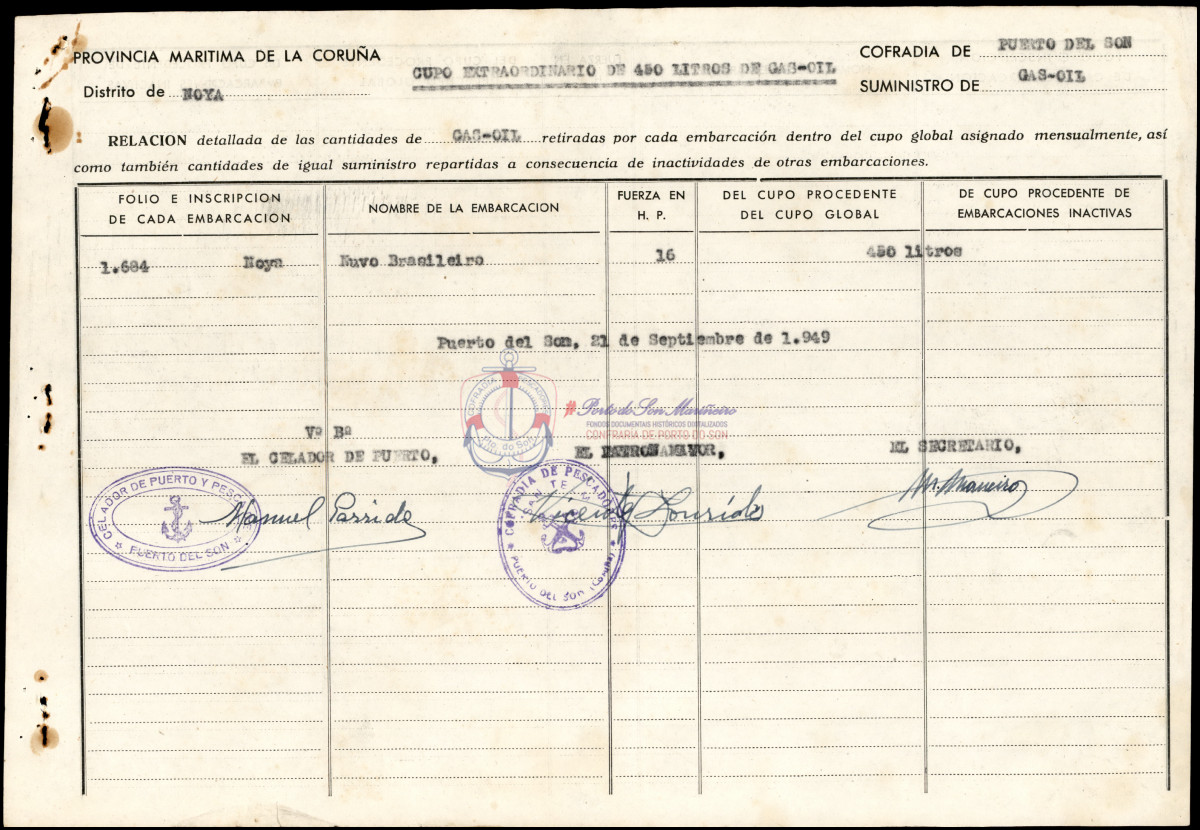 PROVINCIA MARITIMA DE LA CORUÑA
COFRADIA DE PUERTO DEL SON
CUPO EXTRAORDINARIO DE 450 LITROS DE GAS-OIL
Distrito de NOYA
SUMINISTRO DE GAS-OIL
RELACION detallada de las cantidades de GAS-OIL retiradas por cada embarcación dentro del cupo global asignado mensualmente, así
como también cantidades de igual suministro repartidas a consecuencia de inactividades de otras embarcaciones.
FOLIO E INSCRIPCION
DE CADA EMBARCACION
NOMBRE DE LA EMBARCACION
FUERZA EN
H. P.
DEL CUPO PROCEDENTE
DEL CUPO GLOBAL
DE CUPO PROCEDENTE DE
EMBARCACIONES INACTIVAS
1.684 Noya Nuvo Brasileiro 16 450 litros
Puerto del Son, 21 de Septiembre de 1.949
COFRADIA PESCADORES
Pto. do Son
#Porto do Son Mariñeiro
FONDOS DOCUMENTAIS HISTÓRICOS DIXITALIZADOS
CONFRARÍA DE PORTO DO SON
Vº Bº
EL CELADOR DE PUERTO,
EL PATRON MAYOR,
EL SECRETARIO,
CELADOR DE PUERTO Y PESCA
PUERTO DEL SON
Manuel Parride
COFRADIA DE PESCADORES
PUERTO DEL SON (Coruña)
Vicente Lourido
M. Maneiro